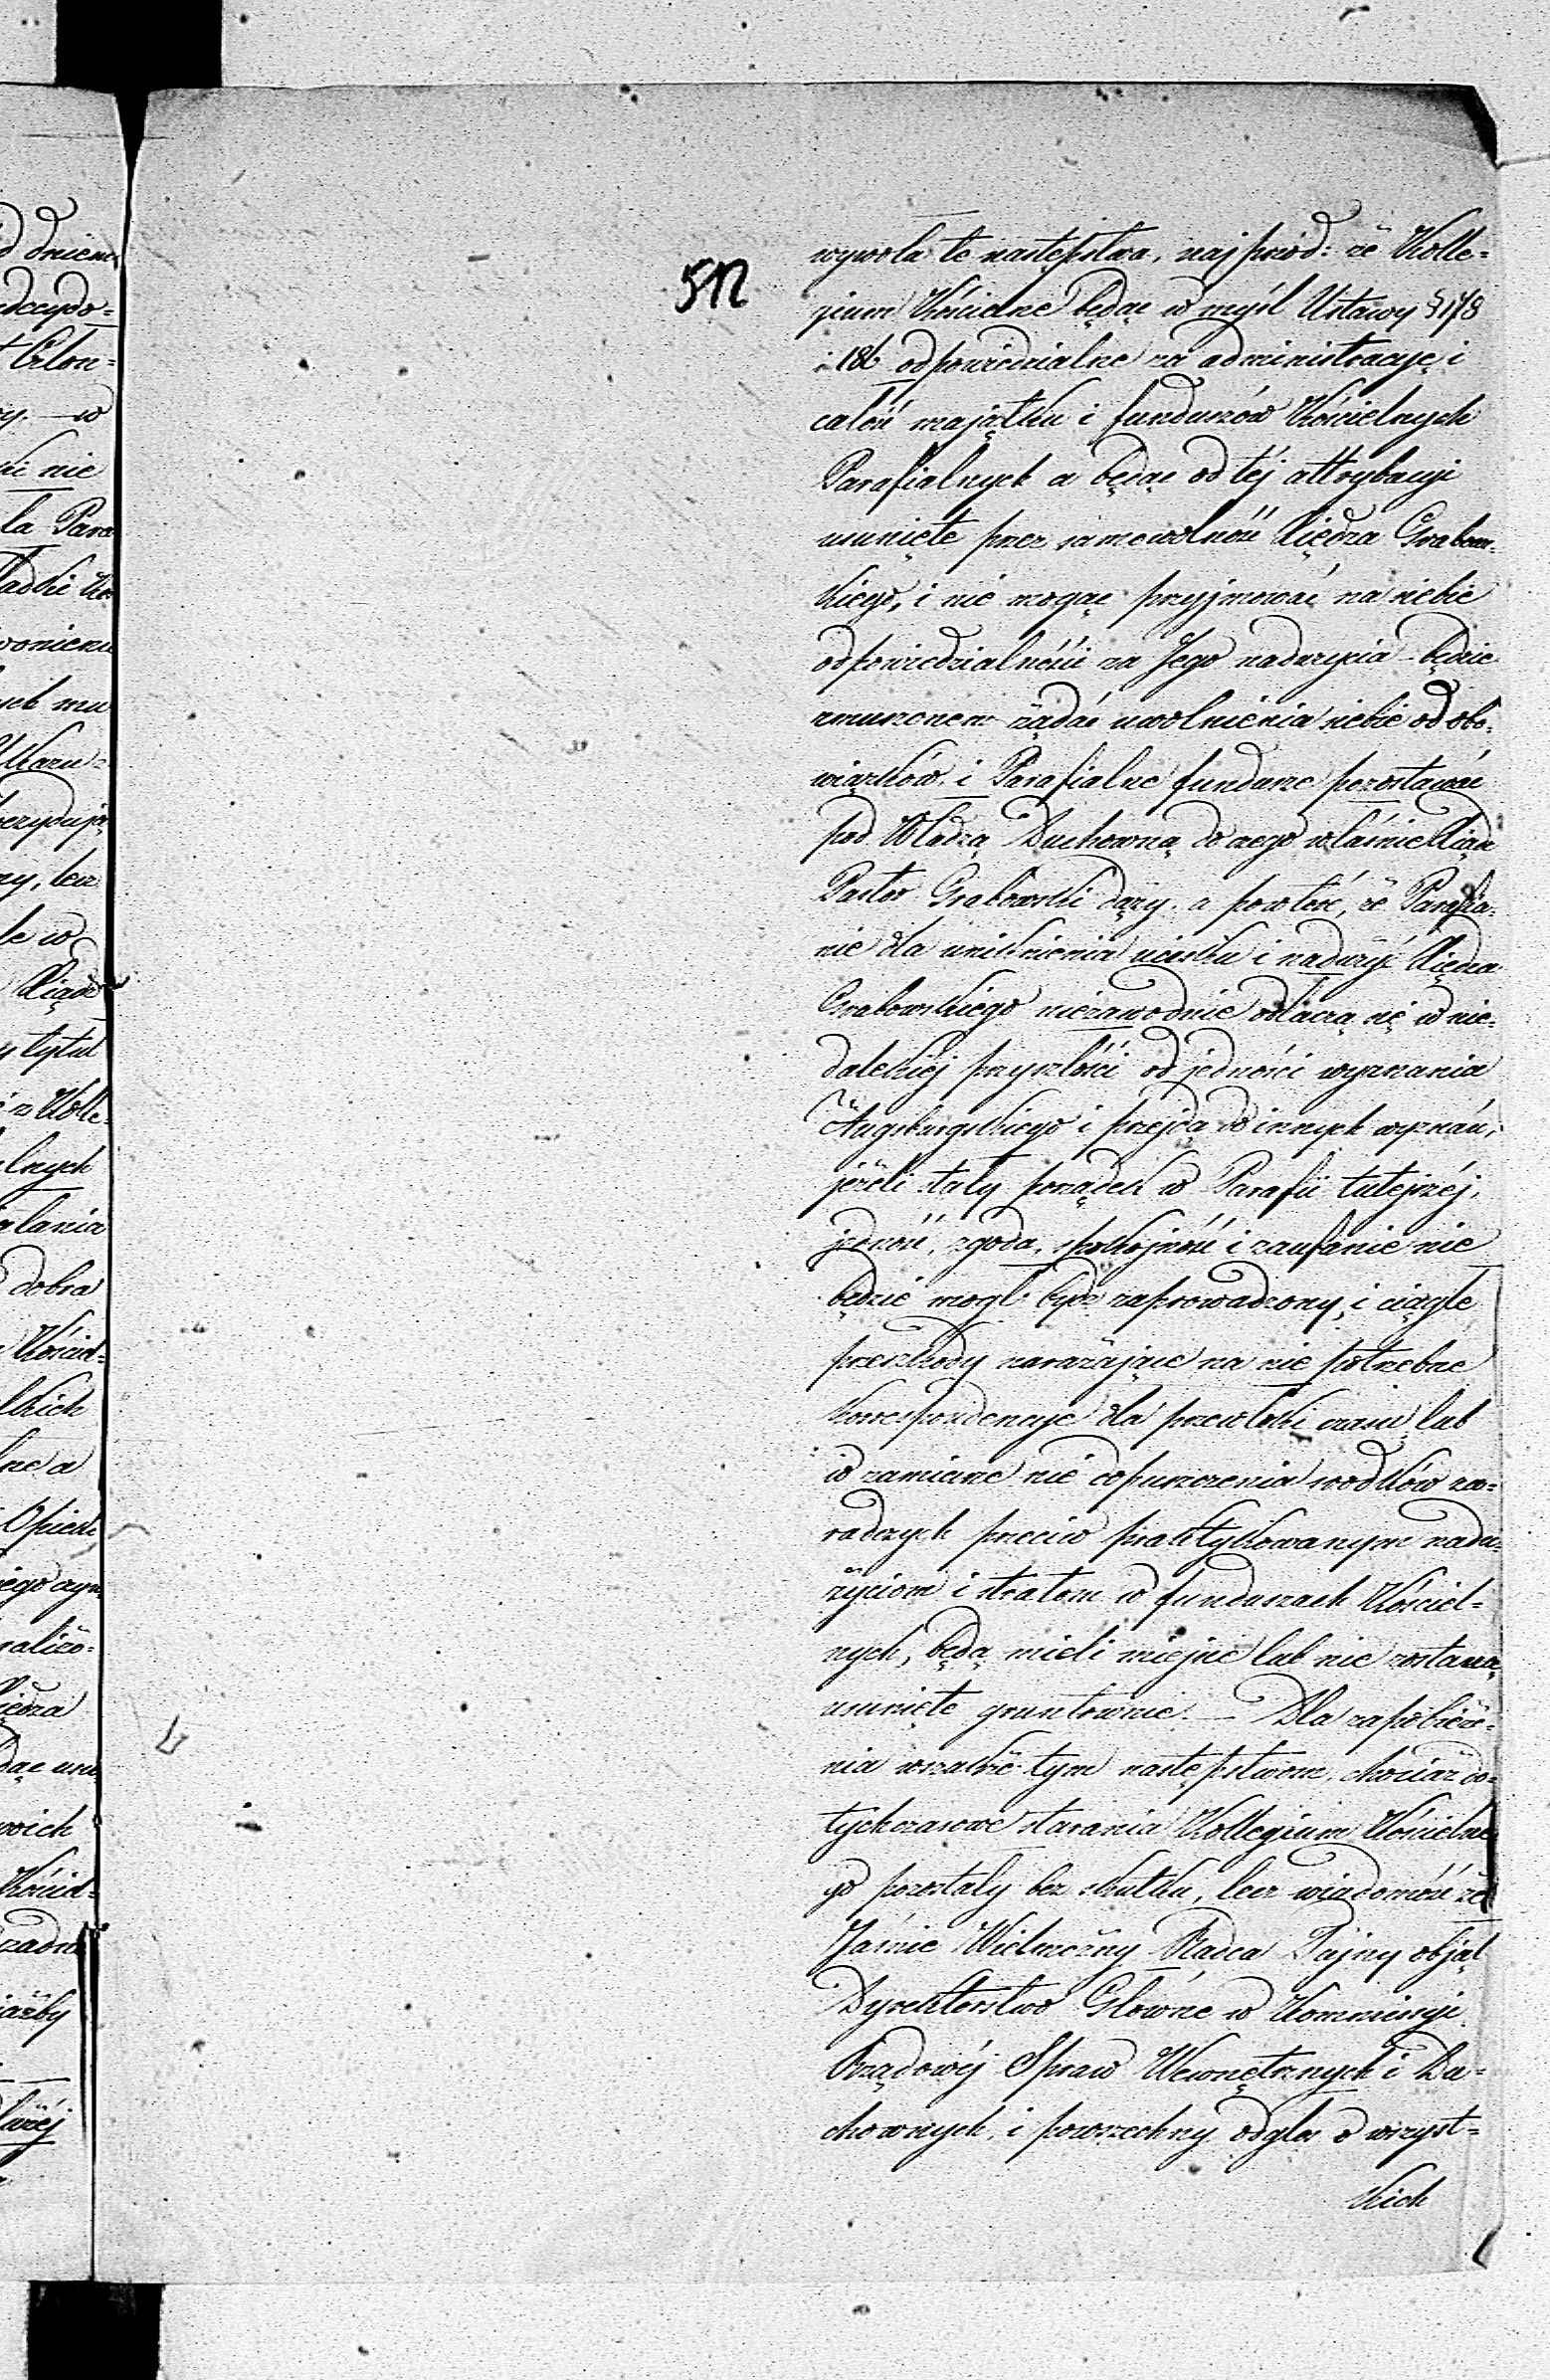 512
wywoła te następstwa, najprzód: że Kolle=
gium Kościelne będąc w myśl Ustawy § 178
i 186 odpowiedzialne za administracyę i
całość majątku i funduszów Kościelnych
Parafialnych a będąc od téj attrybucyi
usunięte przez samowolność Księdza Grabow=
skiego, i nie mogąc przyjmować na siebie
odpowiedzialności za Jego nadużycia będzie
zmuszonem żądać uwolnienia siebie od obo=
wiązków, i Parafialne fundusze pozostawić
pod Władzą Duchowną do czego właśnie Ksiądz
Pastor Grabowski dąży. a powtóre, że Parafia=
nie dla uniknienia ucisku i nadużyć Księdza
Grabowskiego niezawodnie odłączą się w nie=
dalekiéj przyszłości od jedności wyznania
Augsburgskiego i przejdą do innych wyznań,
jeżeli stały porządek w Parafii tutejszéj,
jedność, zgoda, spokojność i zaufanie nie
będzie mogł bydź zaprowadzony, i ciągle
przeszkody narażające na nie potrzebne
korrespondencye dla przewłoki czasu, lub
w zamiarze nie dopuszczenia srodków za=
radczych przeciw praktykowanym nadu=
życiom i stratom w funduszach Kościel=
nych, będą mieli miejsce lub nie zostaną
usunięte gruntownie. — Dla zapobieże=
nia wszakże tym następstwom, chociaż do=
tychczasowe starania Kollegium Kościelne
go pozostały bez skutku, lecz wiadomość że
Jaśnie Wielmożny Radca Tajny objął
Dyrektorstwo Główne w Kommissyi
Rządowéj Spraw Wewnętrznych i Du=
chownych, i powszechny odgłos o wszyst=
kich